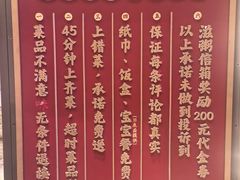 一
菜品不满意、无条件退换
二
45分钟上齐菜、超时菜品
三
上错菜、承诺免费送
四
纸巾、饭盒、宝宝餐免费
五
保证每条评论都真实
六
以上承诺未做到投诉到
滋粥信箱奖励200元代金券